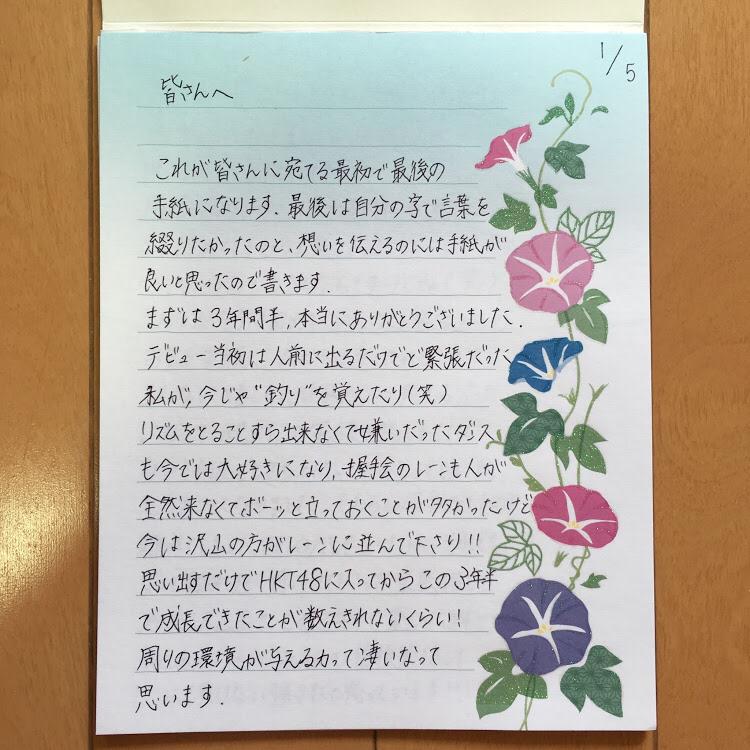 1/5
皆さんへ
これが皆さんに宛てる最初で最後の
手紙になります.最後は自分の字で言葉を
綴りたかったのと、想いを伝えるのには手紙が
良いと思ったので書きます.
まずは3年間半,本当にありがとうございました.
デビュー当初は人前に出るだけでど緊張だった
私が,今じゃ"釣り"を覚えたり(笑)
リズムをとることすら出来なくて嫌いだったダンス
も今では大好きになり,握手会のレーンも人が
全然来なくてボーッと立っておくことが多かったけど
今は沢山の方がレーンに並んで下さり!!
思い出すだけでHKT48に入ってからこの3年半
で成長できたことが数えきれないくらい!
周りの環境が与える力って凄いなって
思います.